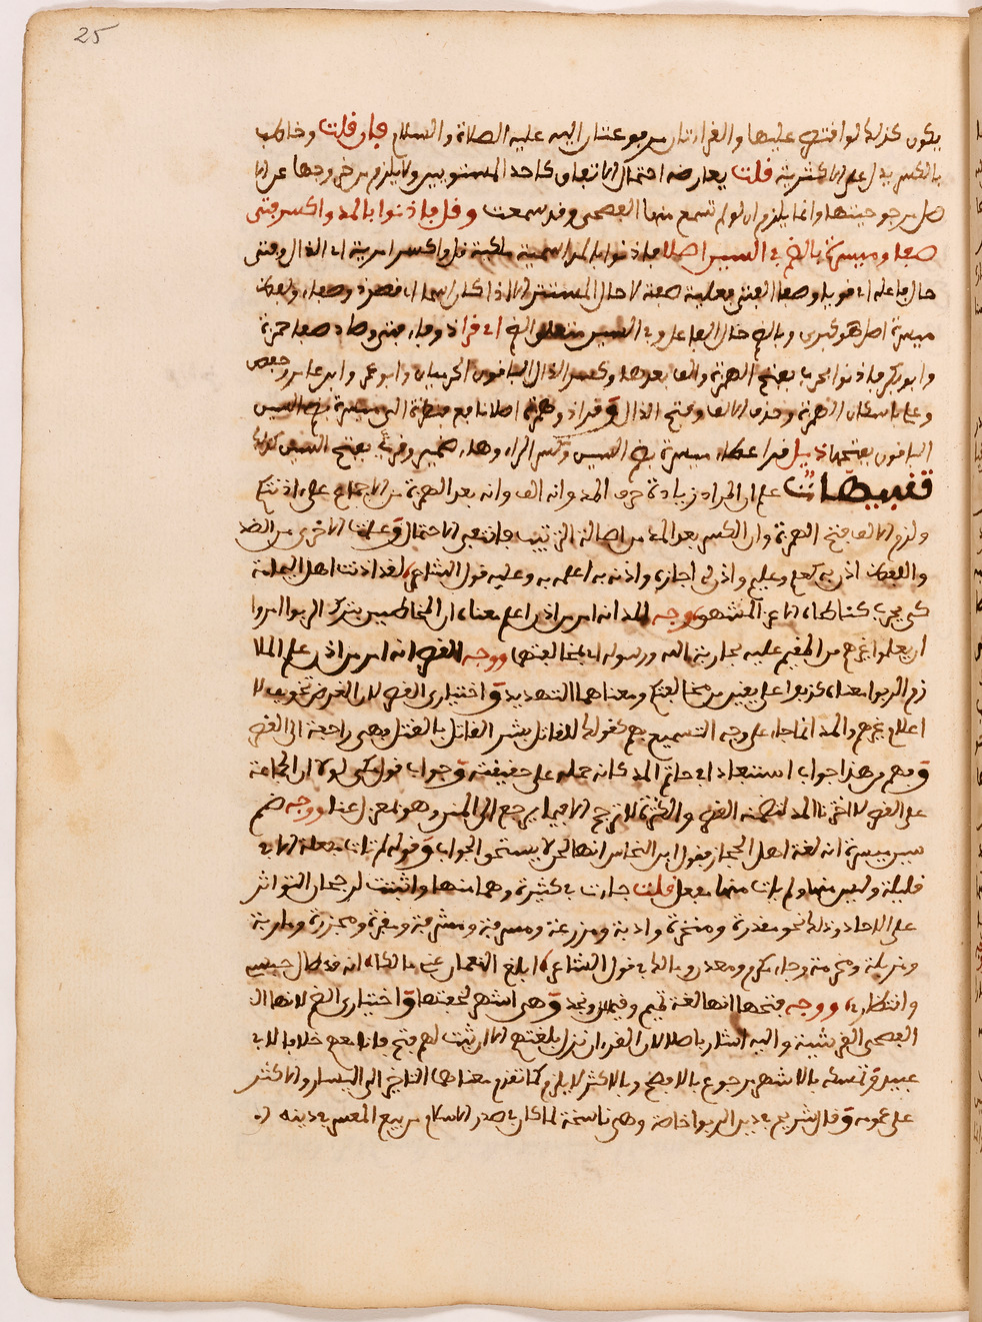 25
يكون كذلك لو اقتضى عليها والقراءتان مرفوعتان اليه عليه الصلاة والسلام فإن قلت وخاطب
بالكسر يدل على الاكثرية قلت يعارضه احتمال الاتفاق كاحد المستويين ولا يلزم من خروجها عن الا
صل مرجوحيتها وانما يلزم ان لو لم تسمع منها الفصحى وقد سمعت وقل فاذنوا بالمد واكسر فتى
صفا وميسرة بالضم في السين اصلا فاذنوا
حال فاعله اي قويا وصفا الفتى فعلية صفة لا حال
ميسرة اصل هو كبرى وبالضم حال الفاعل وفي السين متعلق الضم اي قرا ذو فاء فتى وصاد صفا حمزة
وابو بكر فاذنوا بحرب بفتح الهمزة والف بعدها وكسر الذال الباقون الحرميان وابو عمرو وابن عامر وحفص
وعلي باسكان الهمزة وحذف الالف وفتح الذال وقرا ذو همزة اصلا نافع فنظرة الى ميسرة بضم السين
الباقون بفتحها ذيل قرا عطاء ميسرة بضم السين وكسر الراء وهاء ضمير وقرئ بفتح السين كذلك
تنبيهات علم ان المراد زيادة حرف المد وانه الف وانه بعد الهمزة من الاجماع على اذنتكم
ولزم الالف فتح الهمزة وان الكسر بعد المد من اصالة الترتيب فانتفى الاحتمال وعلمت الاخرى من الضد
واللفظ اذن به كعلم وعليم واذن له اجازه واذنه به اعلمه به وعليه قول الشاعر لقد اذنت اهل اليمامة
وجه المد انه امر من اذن اعلم معناه ان المخاطبين بترك الربوا امروا
ان يعلموا غيرهم من المقيم عليه بحاربة الله ورسوله اي بمخالفتها ووجه القصر انه امر من اذن علم الملا
زم الربوا معناه كونوا على يقين من مخالفتكم ومعناهما التهديد واختياري القصر لان الغرض تخويف لا
اعلام غيرهم والمد انما جاء على وجه التسميع فهو كقولك للقاتل بشر القاتل بالقتل فهي راجعة الى القصر
وفهم من هذا جواب استبعاد ابي حاتم المد كانه حمله على حقيقته وجواب قول مكي لولا ان الجماعة
على القصر لاخترنا المد لتضمنه القصر والكثرة لا ترجح الا فيما يرجع الى المتن وهو بمعزل عنا ووجه ضم
سين ميسرة انه لغة اهل الحجاز فقول ابن النحاس انها لحن لا يستحق الجواب وقوله لم تات مفعلة الا في
قليلة وليس منها ولم يات منها مفعل قلت جاءت في كثيرة وهي منها واثبت لرجحان التواتر
على الاحاد وذلك نحو مقدرة ومفخرة وادبة ومزرعة ومسربة ومشرفة ومقبرة ومجزرة وماربة
ومزبلة ومحرمة وجاء مكرم ومعون ومالك في قول الشاعر ابلغ النعمان عني مالكا انه قد طال حبسي
وانتظاري ووجه فتحها انها لغة تميم وقيس ونجد وهي اشهر لخفتها واختياري الضم لانها ال
الفصحى القرشية واليه اشار باصلا لان القران نزل بلغتهم الا ان ثبت لهم فتح فانه افصح خلافا لابي
عبيد وتمسكه بالاشهر مرجوع بالافصح وبالاكثر لا يلزم كما تقدم معناهما التاخير الى اليسار والاكثر
على عمومه وقال شريح في دين الربوا خاصة وهي ناسخة لما كان في صدر الاسلام من بيع المعسر في دينه